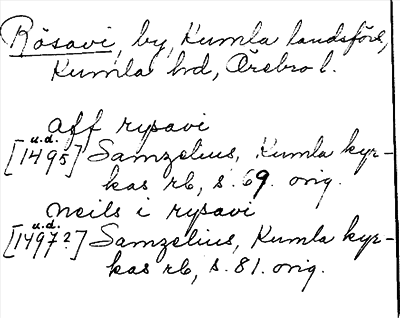 Rösavi, by, Kumla landsförs,
Kumla hd, Örebro l.
aff rysavi
u.d.
[1495] Samzelius, Kumla kyr-
kas rb, s. 69. orig.
neils i rysavi
u.d.
[1497?] Samzelius, Kumla kyr-
kas rb, s. 81. orig.